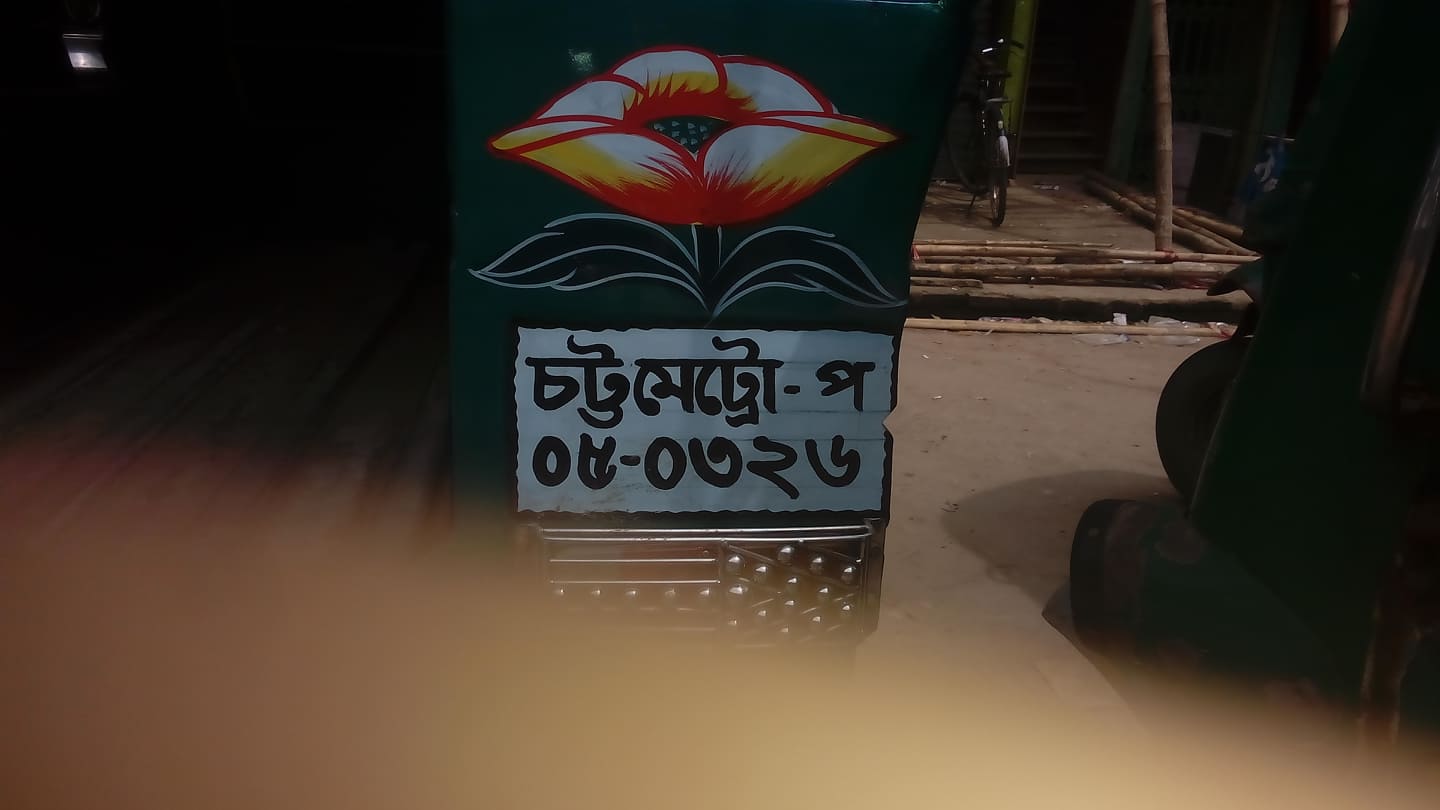 চট্টমেট্রো-প
০৫-০৩২৬